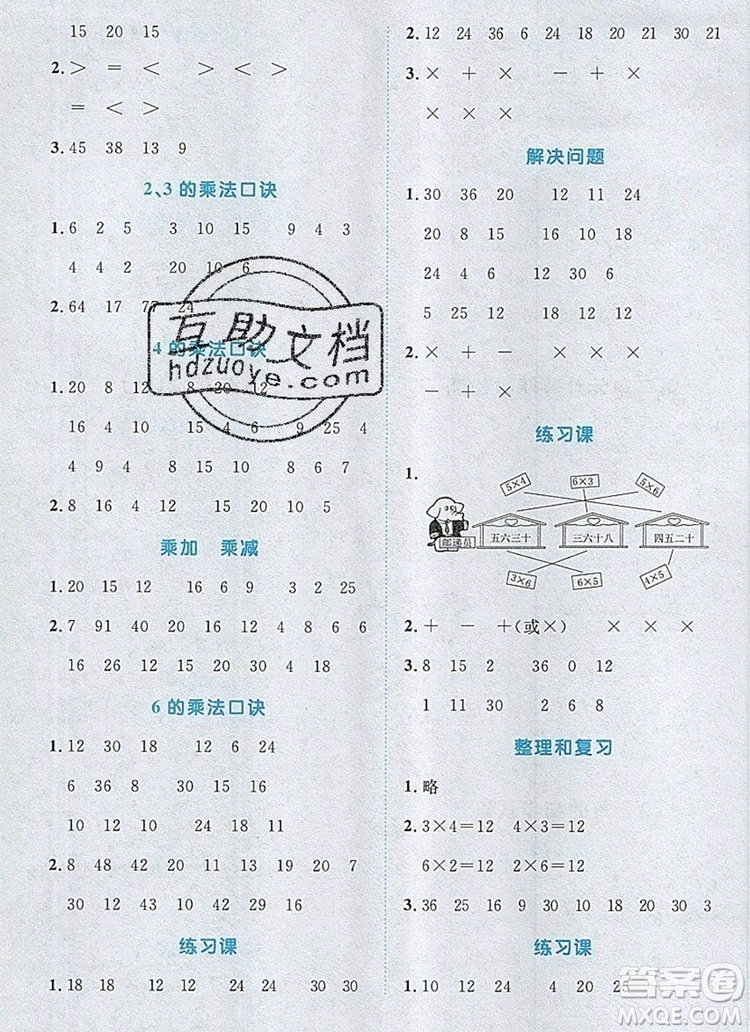 15 20 15
2. > = < > < >
= < >
3. 45 38 13 9
2、3的乘法口诀
1. 6 2 5 3 10 15 9 4 3
4 4 2 20 10 6
2. 64 17 77 24
4的乘法口诀
1. 20 8 12 8 20 12
16 4 2 16 9 25 4
4 9 5 8 16 15 20
2. 8 16 4 12 15 20 10 5
乘加 乘减
1. 20 15 12 16 6 9 3 2 25
2. 7 91 40 20 16 12 4 8 6 6
16 26 12 11 28 30 17
6的乘法口诀
1. 12 30 18 12 6 24
6 36 30 15 10 16
10 12 30 18 24 12
2. 8 48 42 20 18 19 20 7
30 12 43 26 29 16
练习课
1. 18 18 12 24 24 36 30 30
2. 12 24 36 6 8 18 20 21 30 21
3. × + × − + ×
× × ×
解决问题
1. 30 36 20 12 11 24
20 8 15 16 10 18
24 4 6 12 30 20
5 25 12 18 12 8
2. × + − × × ×
− + ×
练习课
1.
5×4 6×3 5×6
邮递员 五六三十 三六十八 四五二十
3×6 6×5 4×5
2. + − +(或×) × × ×
3. 8 15 2 36 0 12
1 12 30 2 6 8
整理和复习
1. 略
2. 3×4=12 4×3=12
6×2=12 2×6=12
3. 36 25 16 9 30 18 20 30 3
练习课
1. 10 12 24 4 20 25
互助文档
hdzuoye.com
答案圈
MXQE.COM